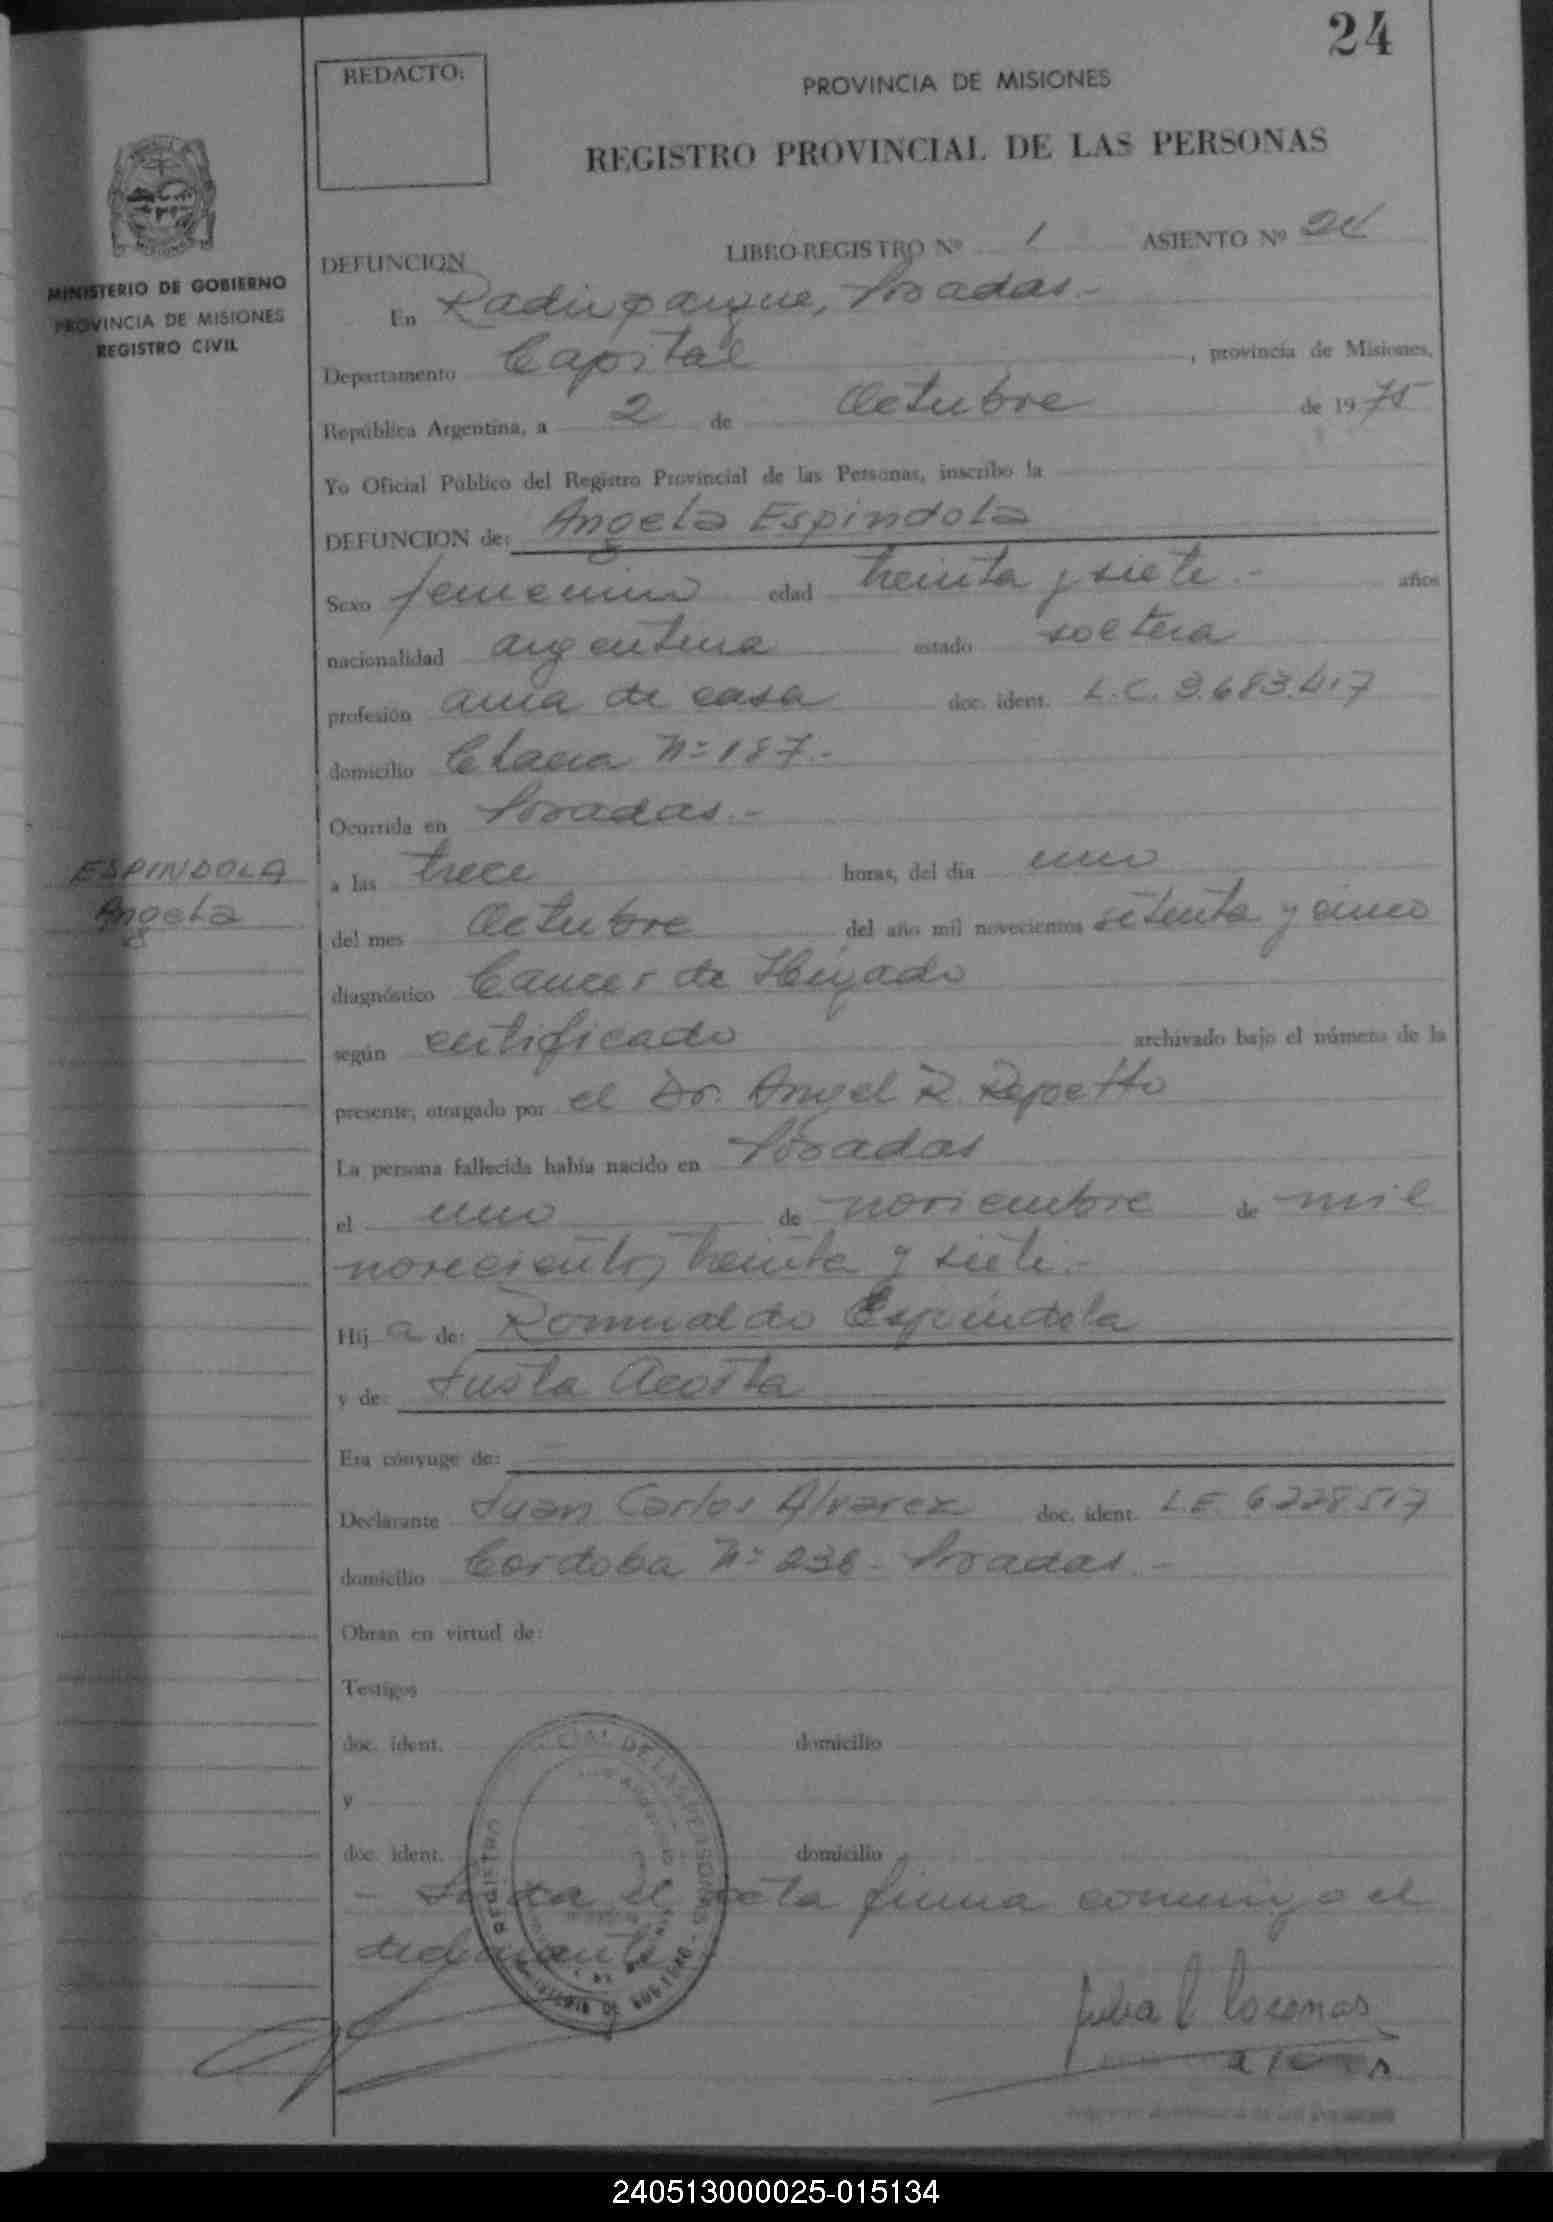 24
REDACTO:
PROVINCIA DE MISIONES
REGISTRO PROVINCIAL DE LAS PERSONAS
MINISTERIO DE GOBIERNO
PROVINCIA DE MISIONES
REGISTRO CIVIL
DEFUNCION LIBRO-REGISTRO Nº 1 ASIENTO Nº 24
En Posadas.-
Departamento Capital, provincia de Misiones,
República Argentina, a 2 de Octubre de 1975
Yo Oficial Público del Registro Provincial de las Personas, inscribo la
DEFUNCION de: Angela Espindola
Sexo femenino edad treinta y siete.- años
nacionalidad argentina estado soltera
profesión ama de casa doc. ident. L.C. 3.683.417
domicilio Nº 187.-
Ocurrida en Posadas.-
ESPINDOLA
Angela
a las trece horas, del día uno
del mes Octubre del año mil novecientos setenta y cinco
diagnóstico Cancer de Higado
según certificado archivado bajo el número de la
presente, otorgado por el Dr. Angel R. Repetto
La persona fallecida había nacido en Posadas
el uno de noviembre de mil
novecientos treinta y siete.-
Hija de: Romualdo Espindola
y de: Justa Acosta
Era cónyuge de:
Declarante Juan Carlos Alvarez doc. ident. L.E. 6.228.517
domicilio Cordoba Nº 238 - Posadas.-
Obran en virtud de:
Testigos
doc. ident. domicilio
y
doc. ident. domicilio
- Leida el acta firma conmigo el
declarante
REGISTRO DE LAS PERSONAS
240513000025-015134